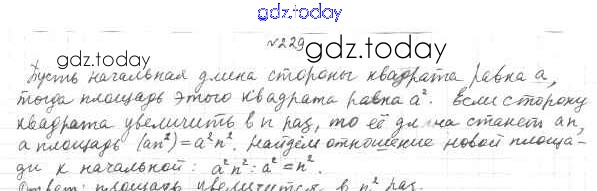 gdz.today
№229
gdz.today
Пусть начальная длина стороны квадрата равна a,
тогда площадь этого квадрата равна a². Если сторону
квадрата увеличить в n раз, то её длина станет an,
а площадь (an²)=a²n². Найдём отношение новой площа-
ди к начальной: a²n²:a²=n².
Ответ: площадь увеличится в n² раз.